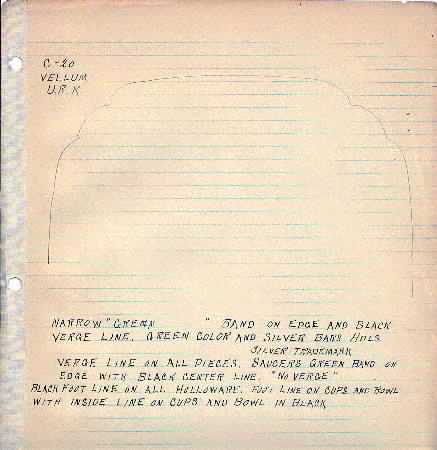 C-20
VELLUM
U.R.K
NARROW "GREEN " BAND ON EDGE AND BLACK
VERGE LINE. GREEN COLOR AND SILVER BAND HDLS
SILVER TRADEMARK
VERGE LINE ON ALL PIECES. SAUCERS GREEN BAND ON
EDGE WITH BLACK CENTER LINE. "NO VERGE"
BLACK FOOT LINE ON ALL HOLLOWARE. FOOT LINE ON CUPS AND BOWL
WITH INSIDE LINE ON CUPS AND BOWL IN BLACK